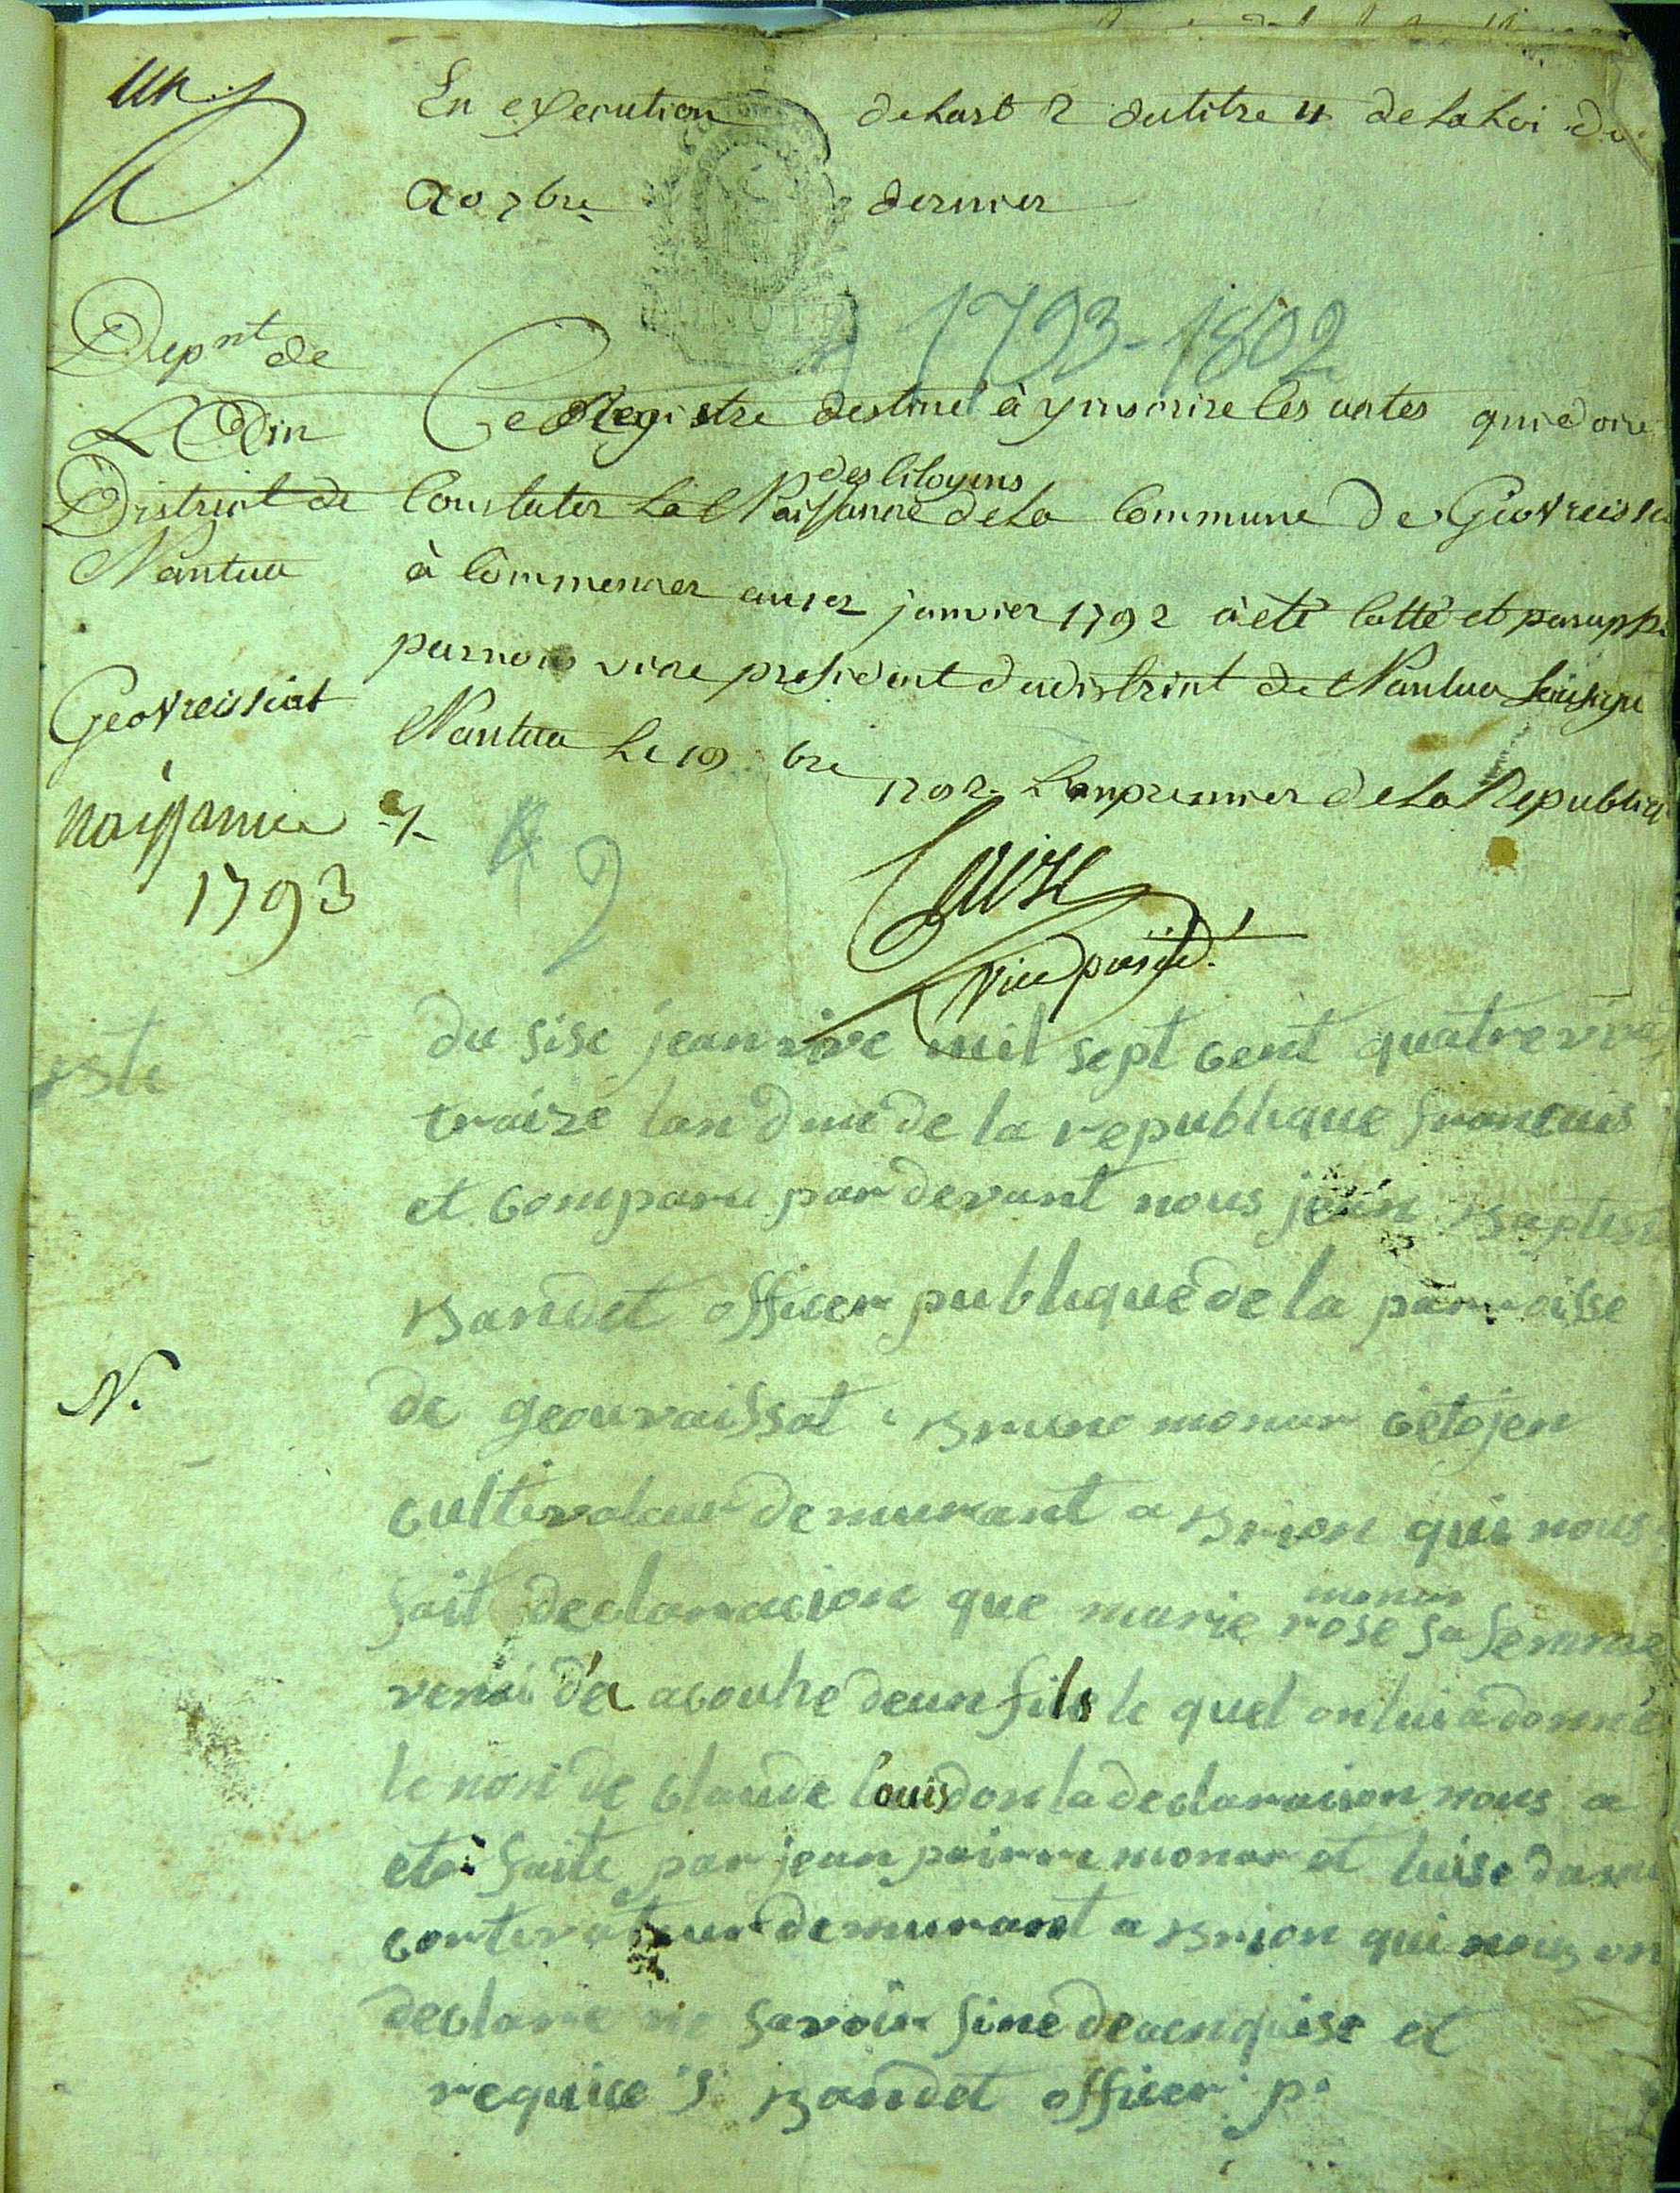 un
En execution de Lart 2 du titre 4 de La Loi du
20 7bre dernier
1793-1802
Depnt de
L'Ain
District de
Nantua
Ce Registre destiné à y inscrire les actes qui doive
Constater La Naissance des Citoyens de La Commune de Géovreissia
à Commencer au 1er janvier 1792 à été Cotté et paraphé
par nous vice président du district de Nantua Soussigne
Nantua Le 19 bre 1792 L'an premier de La Republique
Geovreissiat
Naissance
1793
2
vice présidt
du sise jeanvire mil sept cent quatre vin
traize lan deuc de la republique francais
et comparu par devant nous jean Baptist
Bandet officer publique de la parroisse
N.
de geouvraissat Bruno monar citojen
cultivataur demurant a Brion qui nous
fait declaracion que marie rose monar sa femme
venai d'a acouhe deun fils le quel on lui a donné
le non de claude louis don la declaraison nous a
eté faite par jean pairre monar et luise
cortivateur demurant a Brion qui nous on
declare ne savoir sine de aenquise et
requice Bandet officer p.